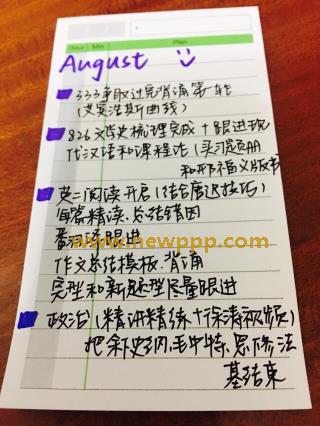 Hour Min Plan
August
333争取过完背诵第一轮
(艾宾浩斯曲线)
826文学史梳理完成+跟进现
代汉语和课程论(买习题册
和邢福义版书
英二阅读开启(结合唐迟技巧)
每篇精读、总结错因
翻译跟进
www.newppp.com
作文总结模板、背诵
完型和新题型尽量跟进
政治(精讲精练+徐涛视频)
把、史纲、毛中特、思修法
基结束